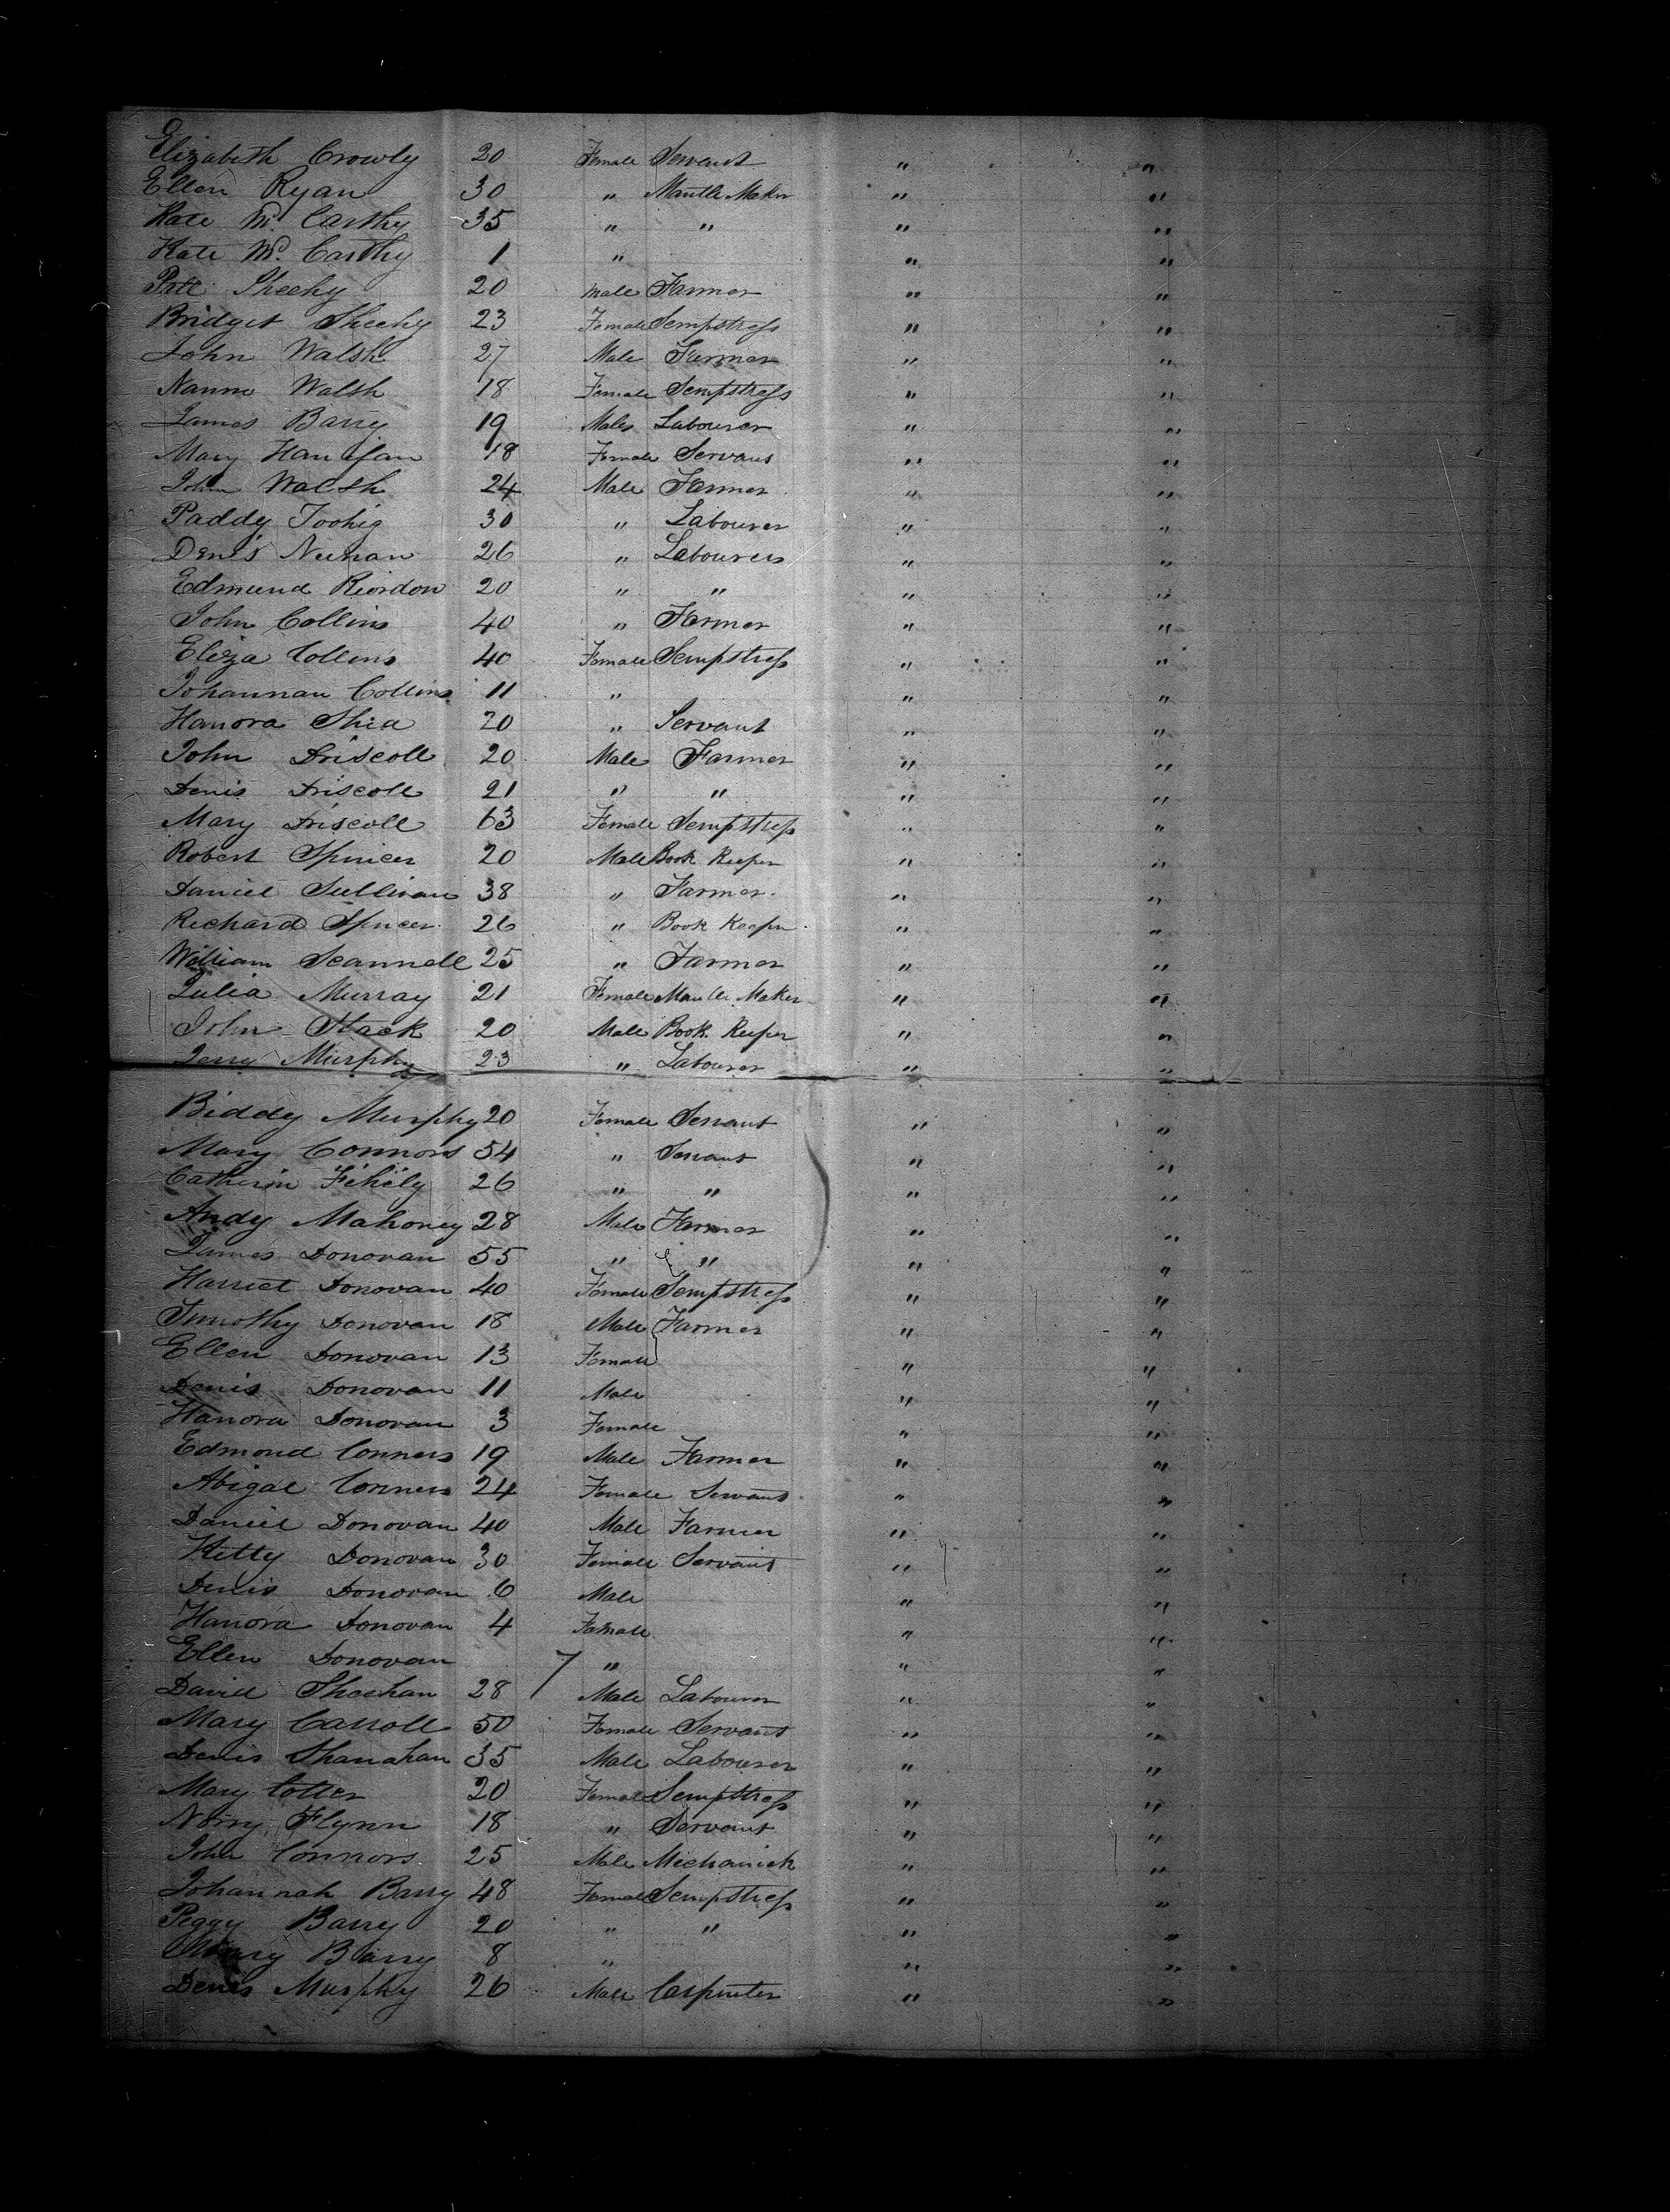 Elizabeth Crowly 20 Female Servant " "
Ellen Ryan 30 " Mantle Maker " "
Kate Mc. Carthy 35 " " " "
Kate Mc. Carthy 1 " " "
Patt Sheehy 20 Male Farmer " "
Bridget Sheehy 23 Female Sempstress " "
John Walsh 27 Male Farmer " "
Walsh 18 Female Sempstress " "
James Barry 19 Male Labourer " "
Mary Hanifan 18 Female Servant " "
John Walsh 24 Male Farmer " "
Paddy Toohig 30 " Labourer " "
Denis Neenan 26 " Labourer " "
Edmund Riordon 20 " " " "
John Collins 40 " Farmer " "
Eliza Collins 40 Female Sempstress " "
Johannah Collins 11 " " "
Hanora Shea 20 " Servant " "
John Driscoll 20 Male Farmer " "
Denis Driscoll 21 " " " "
Mary Driscoll 63 Female Sempstress " "
Robert Spencer 20 Male Book Keeper " "
Daniel Sullivan 38 " Farmer " "
Richard Spencer 26 " Book Keeper " "
William Scannell 25 " Farmer " "
Julia Murray 21 Female Mantle Maker " "
John Stack 20 Male Book Keeper " "
Jerry Murphy 23 " Labourer " "
Biddy Murphy 20 Female Servant " "
Mary Connors 54 " Servant " "
Catherin Fehily 26 " " " "
Andy Mahoney 28 Male Farmer " "
James Donovan 55 " " " "
Harriet Donovan 40 Female Sempstress " "
Timothy Donovan 18 Male Farmer " "
Ellen Donovan 13 Female " "
Denis Donovan 11 Male " "
Hanora Donovan 3 Female " "
Edmond Conners 19 Male Farmer " "
Abigal Conners 24 Female Servant " "
Daniel Donovan 40 Male Farmer " "
Kitty Donovan 30 Female Servant " "
Denis Donovan 6 Male " "
Hanora Donovan 4 Female " "
Ellen Donovan 7 " " "
David Sheehan 28 Male Labourer " "
Mary Carroll 50 Female Servant " "
Denis Shanahan 35 Male Labourer " "
Mary Cotter 20 Female Sempstress " "
Norry Flynn 18 " Servant " "
John Connors 25 Male Mechanick " "
Johannah Barry 48 Female Sempstress " "
Peggy Barry 20 " " " "
Mary Barry 8 " " "
Denis Murphy 26 Male Carpenter " "